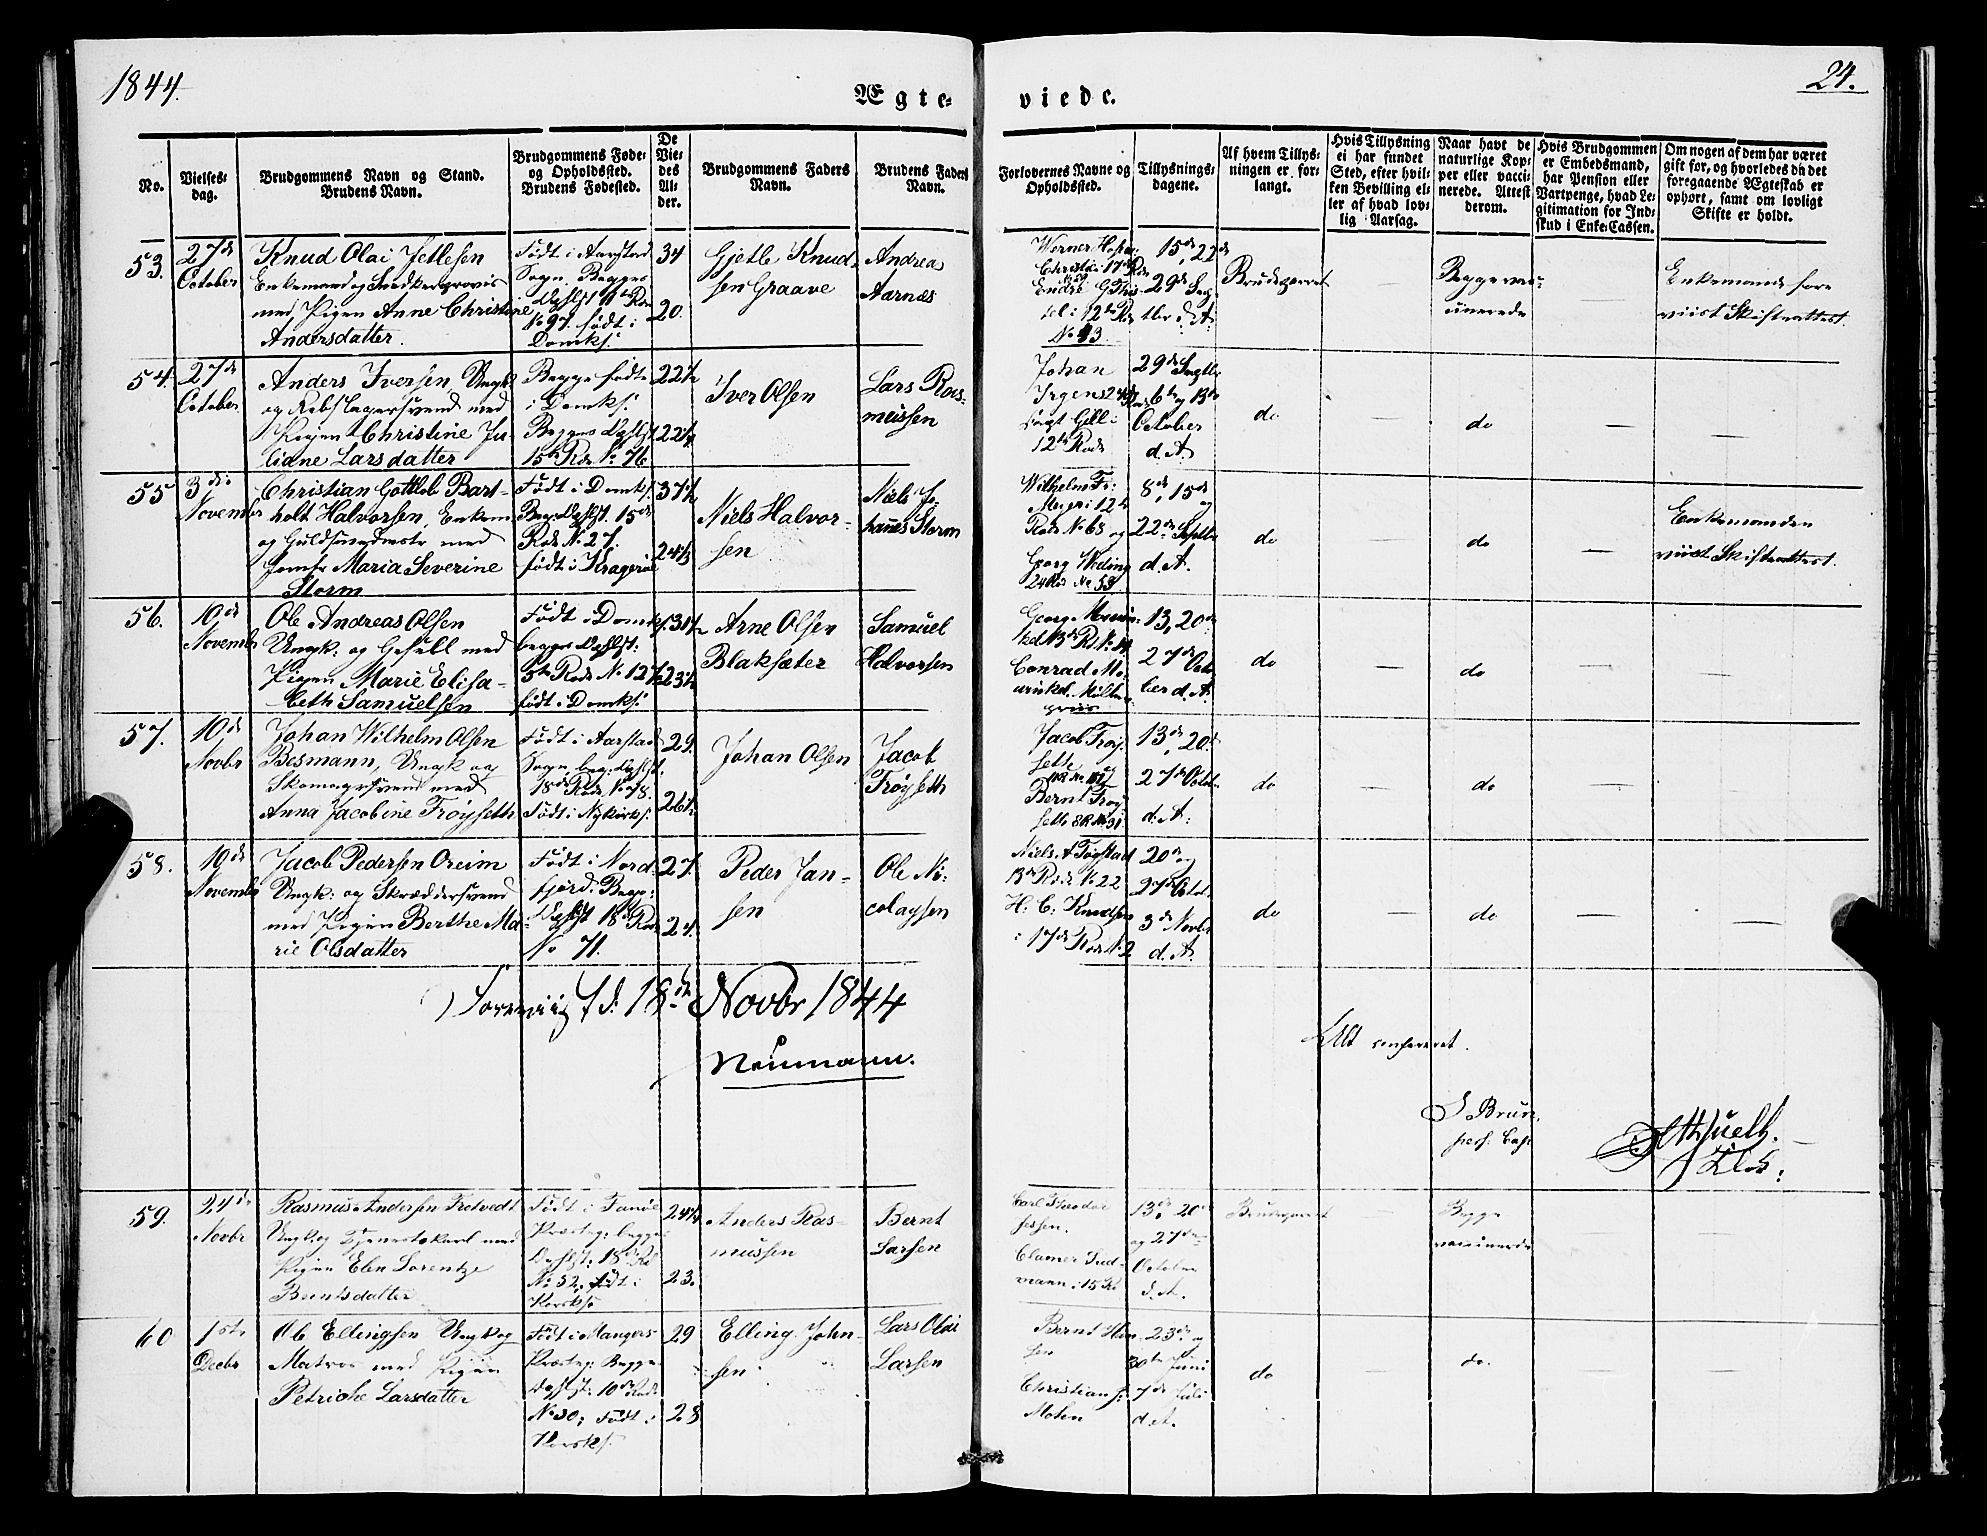 1844.
24.
Ægte-
viede.
No.
Vielses-
dag.
Brudgommens Navn og Stand.
Brudens Navn.
Brudgommens Føde-
og Opholdssted.
Brudens Fødested.
De
Vie-
des
Al-
der.
Brudgommens Faders
Navn.
Brudens Faders
Navn.
Forlovernes Navne og
Opholdssted.
Tillysnings-
dagene.
Af hvem Tillys-
ningen er for-
langt.
Hvis Tillysning
ei har fundet
Sted, efter hvil-
ken Bevilling el-
ler af hvad lov-
lig Aarsag.
Naar havt de
naturlige Kop-
per eller vacci-
nerede. Attest
derom.
Hvis Brudgommen
er Embedsmand,
har Pension eller
Vartpenge, hvad Le-
gitimation for Ind-
skud i Enke-Cassen.
Om nogen af dem har været
gift før, og hvorledes da det
foregaaende Ægteskab er
ophørt, samt om lovligt
Skifte er holdt.
53.
27de
October
Knud Olai Jetlesen
Enkemand og
med Pigen Anne Christine
Andersdatter.
Født i Aarstad
Sogn. Begges
No 97. født i
Domks:
34
20.
Gjetle Knud-
sen Graave
Andreas
Aarnæs
15de, 22de
29de
d. A.
Brudgommet
—
Begge vac-
cinerede
Enkemanden
viist Skifteattest.
54.
27de
October
Anders Iversen, Ungk:
og Rebslagersvend med
Pigen Christine Ju-
liane Larsdatter
Begge fødte
i Domks:
Begges
15de Rode No 76
22½
22¼
Iver Olsen
Lars Ras-
mussen
Johan
Irgens
12te Rode
29de Septb
6te og 13de
October
d. A.
do
—
do
—
—
55
3die
November
Christian Gottlob Bart-
holt Halvorsen, Enkem:
og Guldsmedmstr med
Jomfr Maria Severine
Storm
Født i Domks:
15de
Rode No 27.
født i Kragerøe
37½
24½
Niels Halvor-
sen
Niels Jo-
hannes Storm
Wilhelm Fr:
Meyer i 12te
Rode No 68 og
Georg
24 Rode No 53
8de, 15de
og
22de Septbr
d. A.
do
—
do
—
Enkemanden
viist Skifteattest.
56.
10de
November
Ole Andreas Olsen
Ungk: og Gesell med
Pigen Marie Elisa-
beth Samuelsen
Født i Domks:
begges
5te Rode No 12
født i Domks:
30½
23½
Arne Olsen
Blaksæter
Samuel
Halvorsen
Georg
Conrad
13, 20de
27de Octo-
ber d. A.
do
—
do
—
—
57.
10de
Novbr
Johan Wilhelm Olsen
Besmann, Ungk og
Skomagersvend med
Anna Jacobine Frøyseth
Født i Aarstad
Sogn,
18de Rode No 78.
Født i Nykirks:
29.
26½
Johan Olsen
Jacob
Frøyseth
Jacob Frøy-
seth
Bernt Frøy-
seth 8 R No 31
13de, 20de
27de Octob
d. A:
do
—
do
—
—
58.
10de
November
Jacob Pedersen Oreim
Ungk: og Skræddersvend
med Pigen Berthe Ma-
rie Olsdatter
Født i Nord-
fjord. Begge
18de Rode
No 71.
27.
24.
Peder Jan-
sen
Ole Ni-
colaysen
Niels A Fogstad
13de Rode No 22
H: C: Knudsen
i 17de Rode No 2
20de og
27de Octob
3de Novbr
d. A.
do
—
do
—
—
d. 18de Novbr 1844
Neumann.
Alt confereret.
J Brun.
59.
24de
Novbr
Rasmus Andersen Tretvedt
Ungk: og Tjenestekarl med
Pigen Elen Lorentze
Berntsdatter
Født i
Præsteg: begges
18de Rd
No 52, født i
Korsks:
24¼
23.
Anders Ras-
mussen
Bernt
Larsen
Carl Theodor
Clamer
i 15 Rd
13de, 20de
og 27de
October
d. A.
Brudgommet
—
Begge
vaccinerede
—
—
60
1ste
Decbr
Ole Ellingsen Ungk og
Matros med Pigen
Petriche Larsdatter
Født i Mangers-
Præsteg: Begges
10de Rode
No 30; Født i
Korsks:
29
28
Elling John-
sen
Lars Olai
Larsen
Bernt
Christian J:
Mohn
23de og
30te Juni
7de Juli
d. A.
do
—
do.
—
—